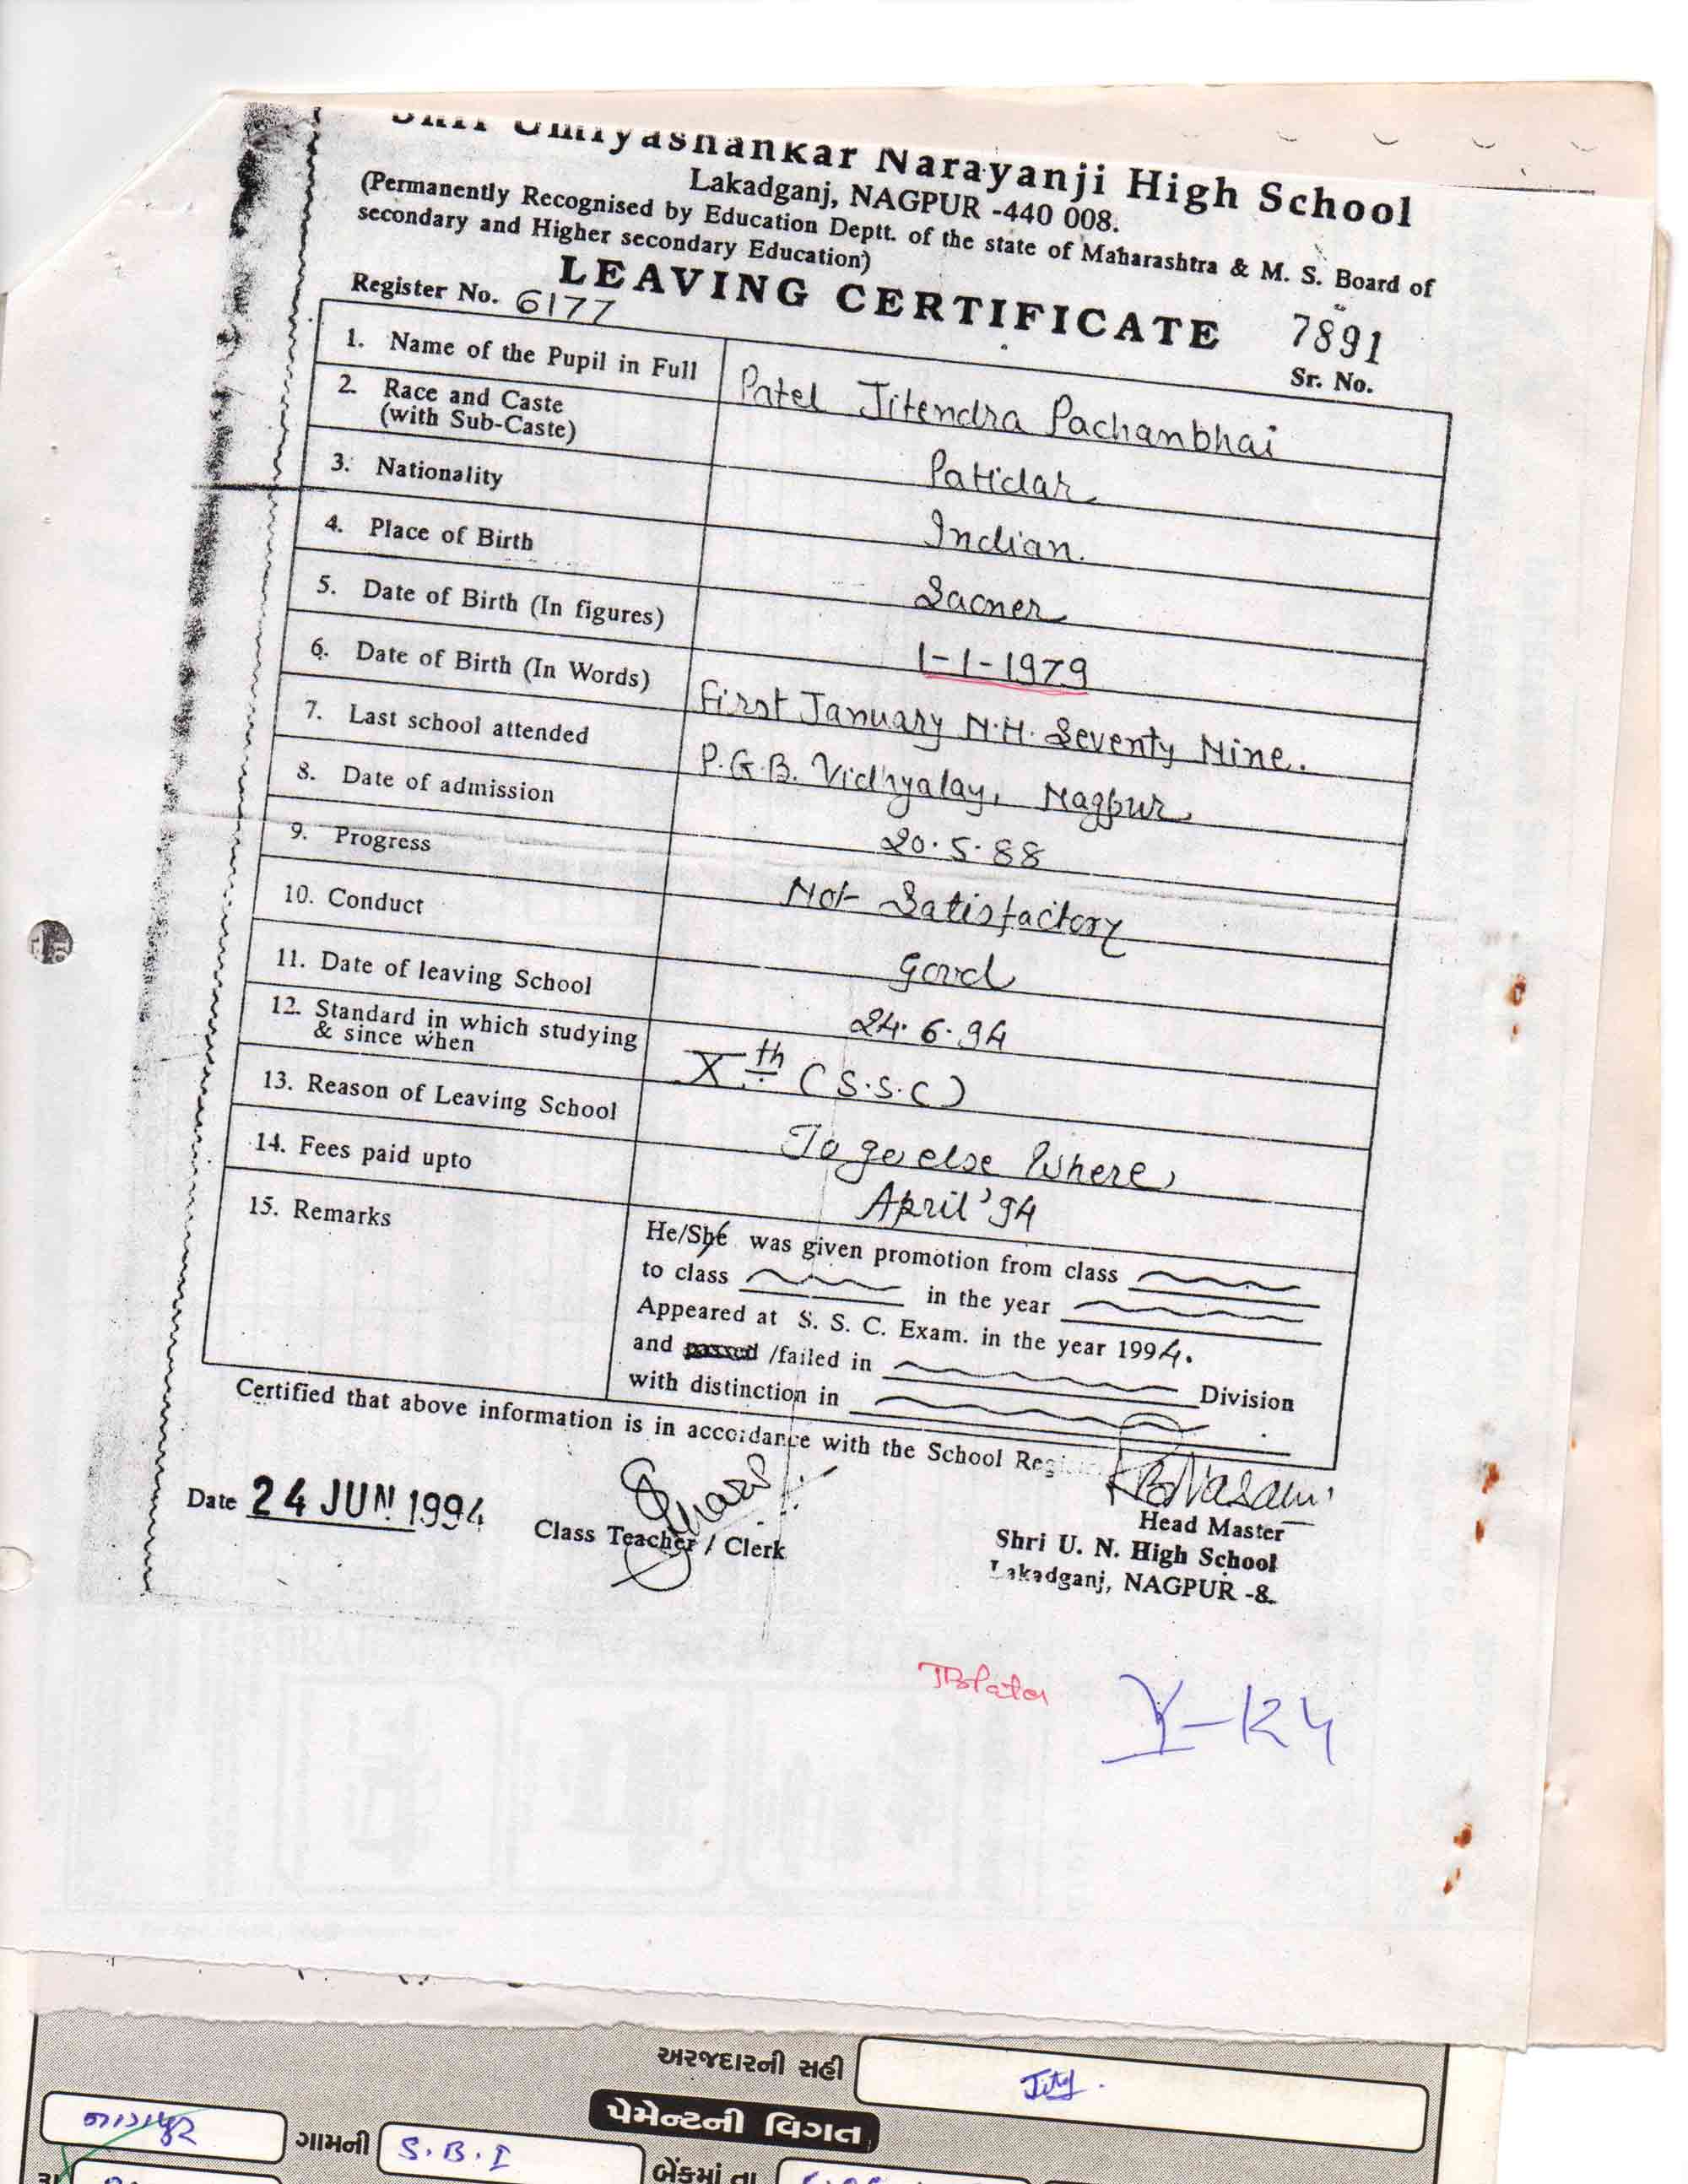 Shri Umiyashankar Narayanji High School
Lakadganj, NAGPUR -440 008.
(Permanently Recognised by Education Deptt. of the state of Maharashtra & M. S. Board of
secondary and Higher secondary Education)
LEAVING CERTIFICATE
Register No. 6177
7891
Sr. No.
1. Name of the Pupil in Full Patel Jitendra Pachanbhai
2. Race and Caste
(with Sub-Caste) Patidar
3. Nationality Indian.
4. Place of Birth Saoner
5. Date of Birth (In figures) 1-1-1979
6. Date of Birth (In Words) First January N.H. Seventy Nine.
7. Last school attended P.G.B. Vidhyalay, Nagpur
8. Date of admission 20.5.88
9. Progress Not Satisfactory
10. Conduct Good
11. Date of leaving School 24.6.94
12. Standard in which studying
& since when Xth (S.S.C)
13. Reason of Leaving School To go else Where
14. Fees paid upto April '94
15. Remarks
He/She was given promotion from class
to class in the year
Appeared at S. S. C. Exam. in the year 1994.
and passed /failed in Division
with distinction in
Certified that above information is in accordance with the School Reg
Date 24 JUN 1994
Class Teacher / Clerk
Head Master
Shri U. N. High School
Lakadganj, NAGPUR -8.
V-K4
અરજદારની સહી
પેમેન્ટની વિગત
નાગપુર ગામની S.B.I બેંકમાં તા